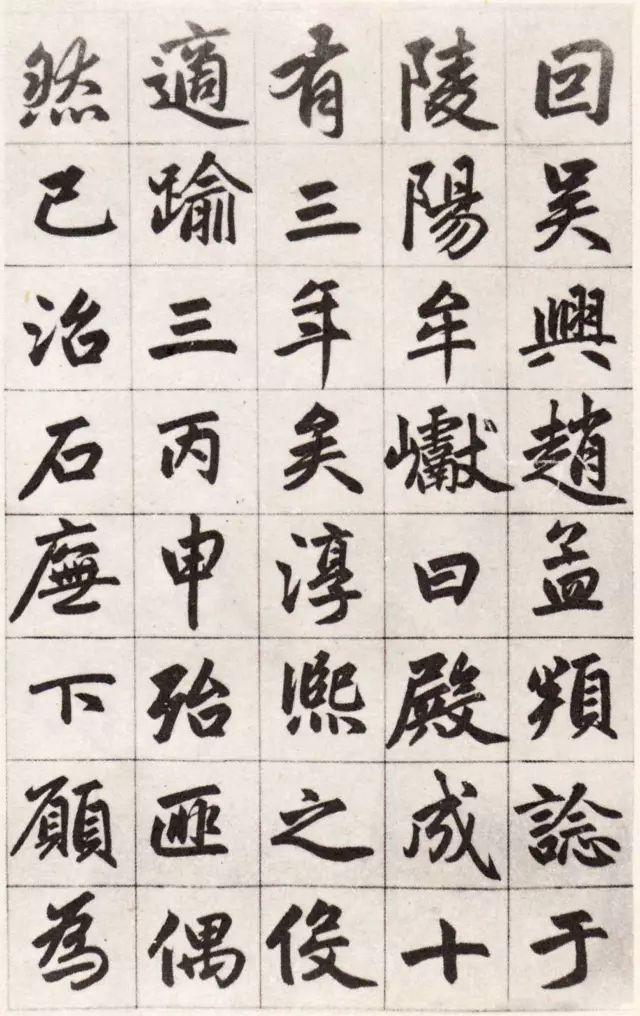 因吳興趙孟頫諗于
陵陽牟巘曰殿成十
有三年矣淳熙之役
適踰三丙申殆匪偶
然已治石廡下願為